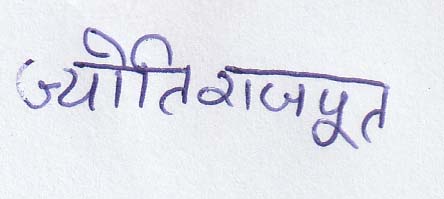 ज्योति राजपूत